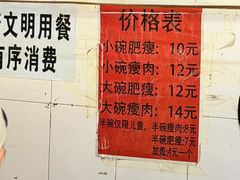 文明用餐
有序消费
价格表
小碗肥瘦: 10元
小碗瘦肉: 12元
大碗肥瘦: 12元
大碗瘦肉: 14元
半碗仅限儿童, 半碗瘦肉:8元
半碗肥瘦:7元
加蛋:4元一个